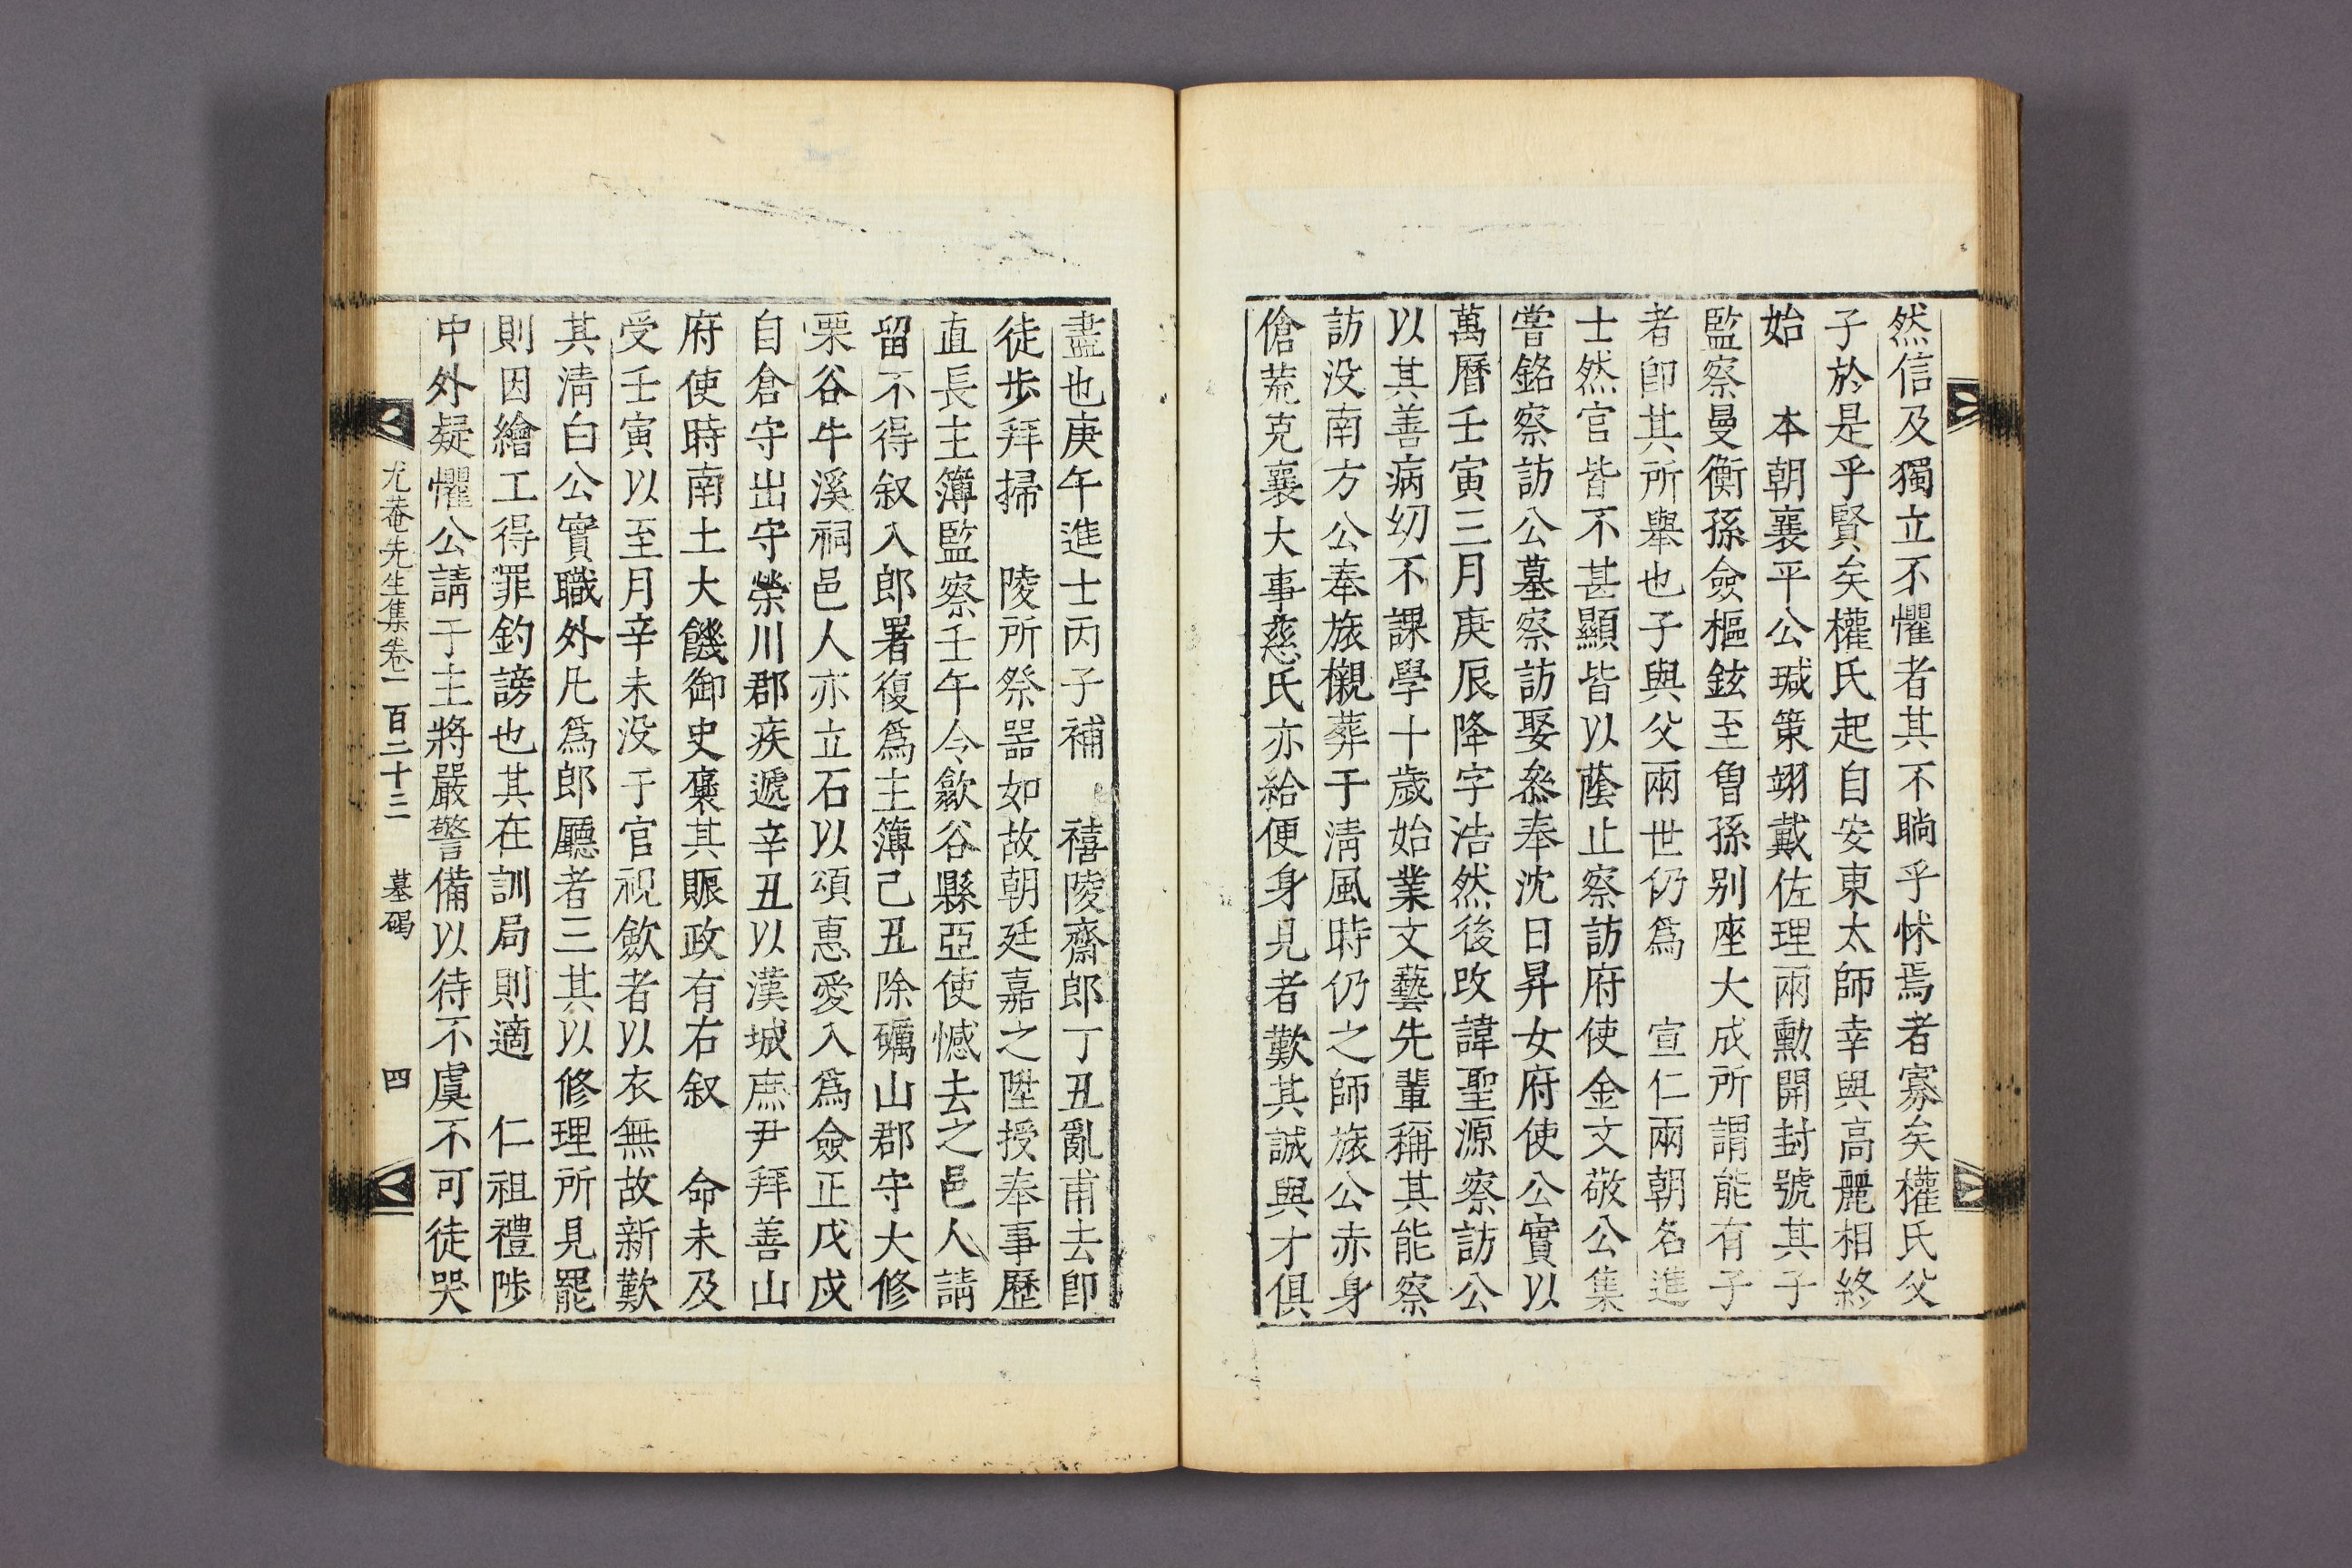 然信及獨立不懼者其不睄乎怵焉者寡矣權氏父
子於是乎賢矣權氏起自安東太師幸與高麗相終
始 本朝襄平公瑊策翊戴佐理兩勳開封號其子
監察曼衡孫僉樞鉉至曾孫別座大成所謂能有子
者卽其所舉也子與父兩世仍爲 宣仁兩朝名進
士然官皆不甚顯皆以蔭止察訪府使金文敬公集
嘗銘察訪公墓察訪娶叅奉沈日昇女府使公實以
萬曆壬寅三月庚辰降字浩然後改諱聖源察訪公
以其善病幼不課學十歲始業文藝先輩稱其能察
訪没南方公奉旅櫬葬于淸風時仍之師旅公赤身
傖荒克襄大事慈氏亦給便身見者歎其誠與才俱
盡也庚午進士丙子補 禧陵齋郎丁丑亂甫去卽
徒步拜掃 陵所祭器如故朝廷嘉之陞授奉事歷
直長主簿監察壬午令歙谷縣亞使憾去之邑人請
留不得叙入郎署復爲主簿己丑除礪山郡守大修
栗谷牛溪祠邑人亦立石以頌惠愛入爲僉正戊戌
自倉守出守榮川郡疾遞辛丑以漢城庶尹拜善山
府使時南土大饑御史褒其賑政有右叙 命未及
受壬寅以至月辛未没于官視歛者以衣無故新歎
其淸白公實職外凡爲郎廳者三其以修理所見罷
則因繪工得罪釣謗也其在訓局則適 仁祖禮陟
中外疑懼公請于主將嚴警備以待不虞不可徒哭
尤菴先生集卷一百二十三 墓碣 四